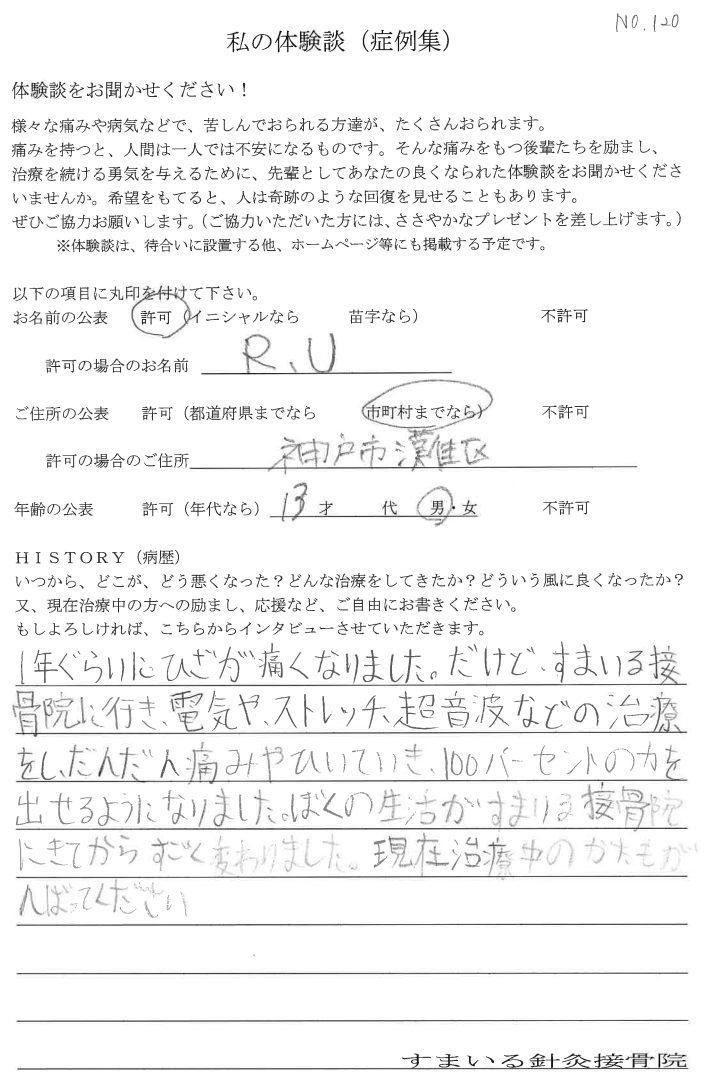 NO.120
私の体験談（症例集）
体験談をお聞かせください！
様々な痛みや病気などで、苦しんでおられる方達が、たくさんおられます。
痛みを持つと、人間は一人では不安になるものです。そんな痛みをもつ後輩たちを励まし、
治療を続ける勇気を与えるために、先輩としてあなたの良くなられた体験談をお聞かせくださ
いませんか。希望をもてると、人は奇跡のような回復を見せることもあります。
ぜひご協力お願いします。（ご協力いただいた方には、ささやかなプレゼントを差し上げます。）
※体験談は、待合いに設置する他、ホームページ等にも掲載する予定です。
以下の項目に丸印を付けて下さい。
お名前の公表　許可（イニシャルなら　苗字なら）　不許可
許可の場合のお名前　R、U
ご住所の公表　許可（都道府県までなら　市町村までなら）　不許可
許可の場合のご住所　神戸市灘区
年齢の公表　許可（年代なら）　13才　代　男・女　不許可
ＨＩＳＴＯＲＹ（病歴）
いつから、どこが、どう悪くなった？どんな治療をしてきたか？どういう風に良くなったか？
又、現在治療中の方への励まし、応援など、ご自由にお書きください。
もしよろしければ、こちらからインタビューさせていただきます。
1年ぐらいにひざが痛くなりました。だけど、すまいる接
骨院に行き、電気や、ストレッチ、超音波などの治療
をし、だんだん痛みやひいていき、100パーセントの力を
出せるようになりました。ぼくの生活がすまいる接骨院
にきてからすごく変わりました。現在治療中のかたもが
んばってください
すまいる針灸接骨院